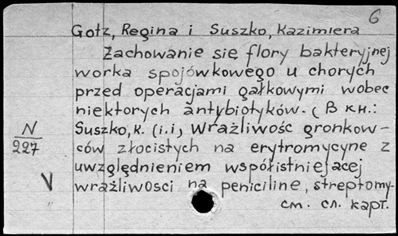 6
Gotz, Regina i Suszko, Kazimiera
Zachowanie się flory bakteryjnej
worka spojówkowego u chorych
przed operacjami gałkowymi wobec
niektorych antybiotyków. (В кн.:
Suszko, K. (i.i) Wrażliwość gronkow-
ców złocistych na erytromycynę z
uwzględnieniem współistniejacej
wrażliwosci na peniciline, streptomy-
см. сл. карт.
N
227
V